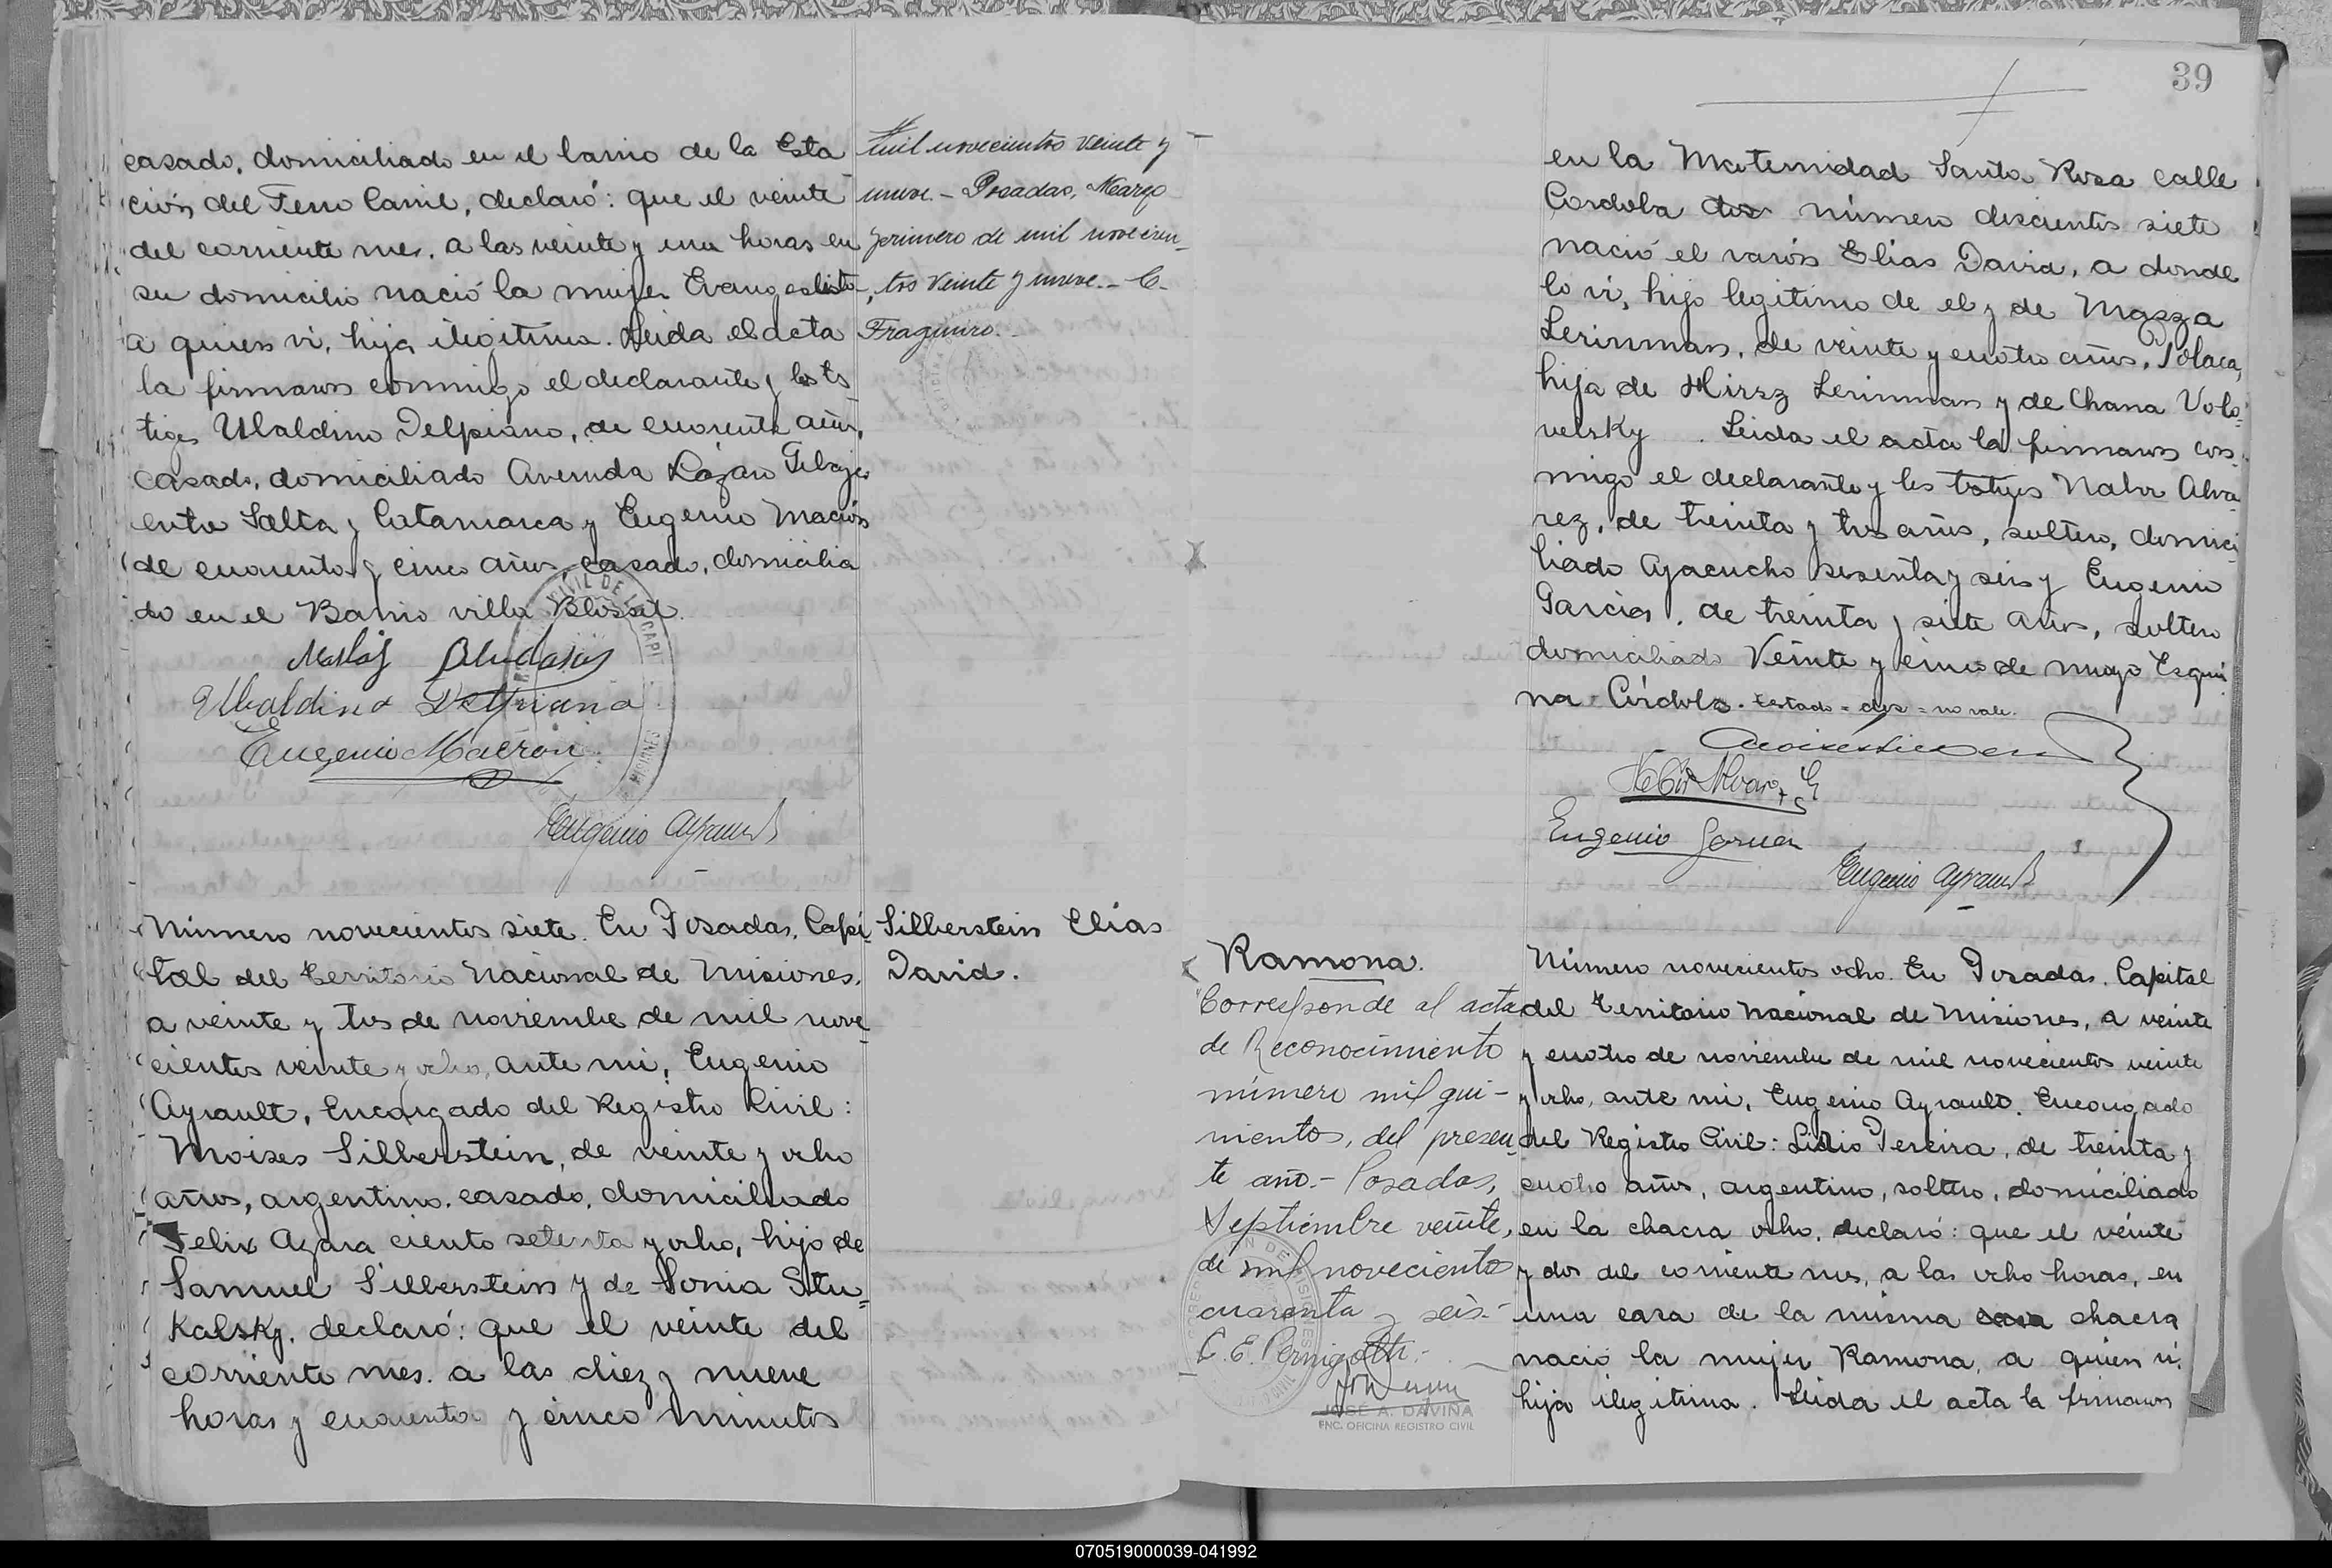 casado, domiciliado en el barrio de la Esta
ción del Ferro Carril, declaró: que el veinte
del corriente mes, a las veinte y una horas en
su domicilio nació la mujer Evangelista
a quien vi, hija ilegitima. Leida el acta
la firmaron conmigo el declarante y los tes
tigos Ubaldino Delpiano, de cuarenta años,
casado, domiciliado Avenida Lázaro
entre Salta y Catamarca y Eugenio
de cuarenta y cinco años, casado, domicilia
do en el Barrio villa Blosset.
Ubaldino Delpiano
Eugenio
Eugenio Ayrault
mil novecientos veinte y
nueve.- Posadas, Marzo
primero de mil novecien_
tos veinte y nueve.- C.
Número novecientos siete. En Posadas, Capi_
tal del Territorio Nacional de Misiones,
a veinte y tres de noviembre de mil nove_
cientos veinte y ocho, ante mi, Eugenio
Ayrault, Encargado del Registro Civil:
Moises Silberstein, de veinte y ocho
años, argentino, casado, domiciliado
Felix Azara ciento setenta y ocho, hijo de
Samuel Silberstein y de Sonia Stu=
Kalsky, declaró: que el veinte del
corriente mes, a las diez y nueve
horas y cuarenta y cinco minutos
Silberstein Elias
David.
39
en la Maternidad Santa Rosa calle
Cordoba dos número doscientos siete
nació el varón Elías David, a donde
lo vi, hijo legitimo de el y de Masza
Lerinman, de veinte y cuatro años, Polaca,
hija de Hirsz Lerinman y de Chana Volo=
velsky. Leida el acta la firmaron con_
migo el declarante y los testigos Alva
rez, de treinta y tres años, soltero, domici
liado Ayacucho sesenta y seis y Eugenio
Garcia, de treinta y siete años, soltero
domiciliado Veinte y cinco de mayo Esqui
na Córdoba. Testado = dos = no vale.
Eugenio Garcia
Eugenio Ayrault
Ramona.
Corresponde al acta
de Reconocimiento
número mil qui-
nientos, del presen_
te año.- Posadas,
Septiembre veinte,
de mil novecientos
cuarenta y seis.-
C. E. Pernigotti.-
JOSÉ A. DAVIÑA
ENC. OFICINA REGISTRO CIVIL
Número novecientos ocho. En Posadas, Capital
del Territorio Nacional de Misiones, a veinte
y cuatro de noviembre de mil novecientos veinte
y ocho, ante mi, Eugenio Ayrault, Encargado
del Registro Civil: Lidio Pereira, de treinta y
cuatro años, argentino, soltero, domiciliado
en la chacra ocho, declaró: que el veinte
y dos del corriente mes, a las ocho horas, en
una casa de la misma casa chacra
nació la mujer Ramona, a quien vi,
hija ilegitima. Leida el acta la firmaron
070519000039-041992